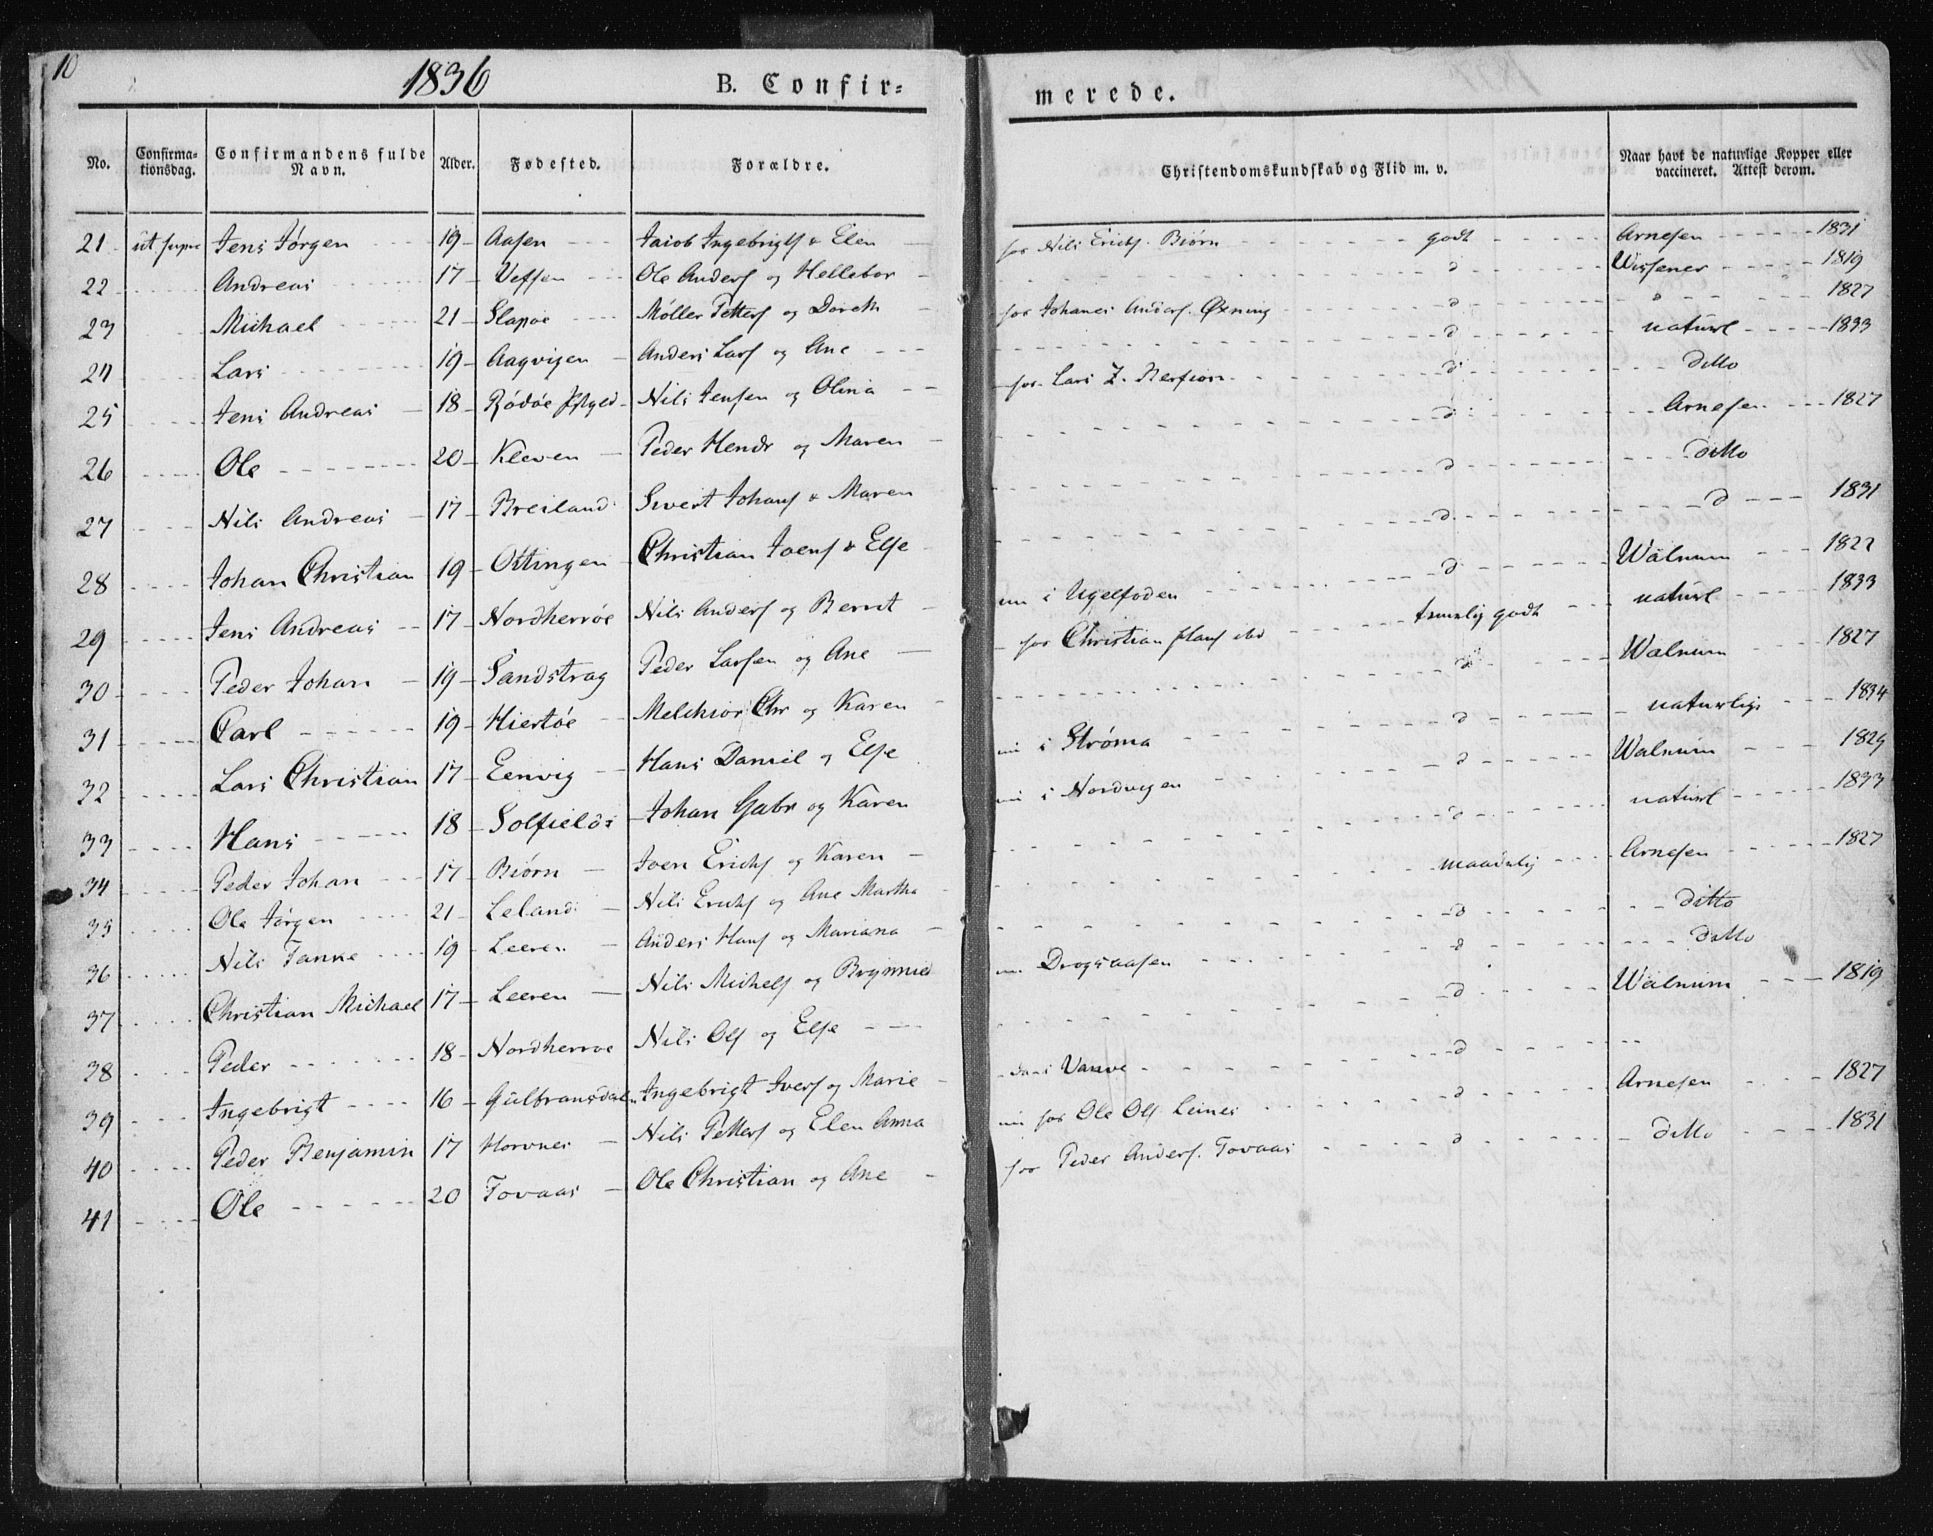 10
1836
B. Confir-
merede.
No. Confirma-tionsdag. Confirmandens fulde Navn. Alder. Fødested. Forældre. Christendomskundskab og Flid m. v. Naar havt de naturlige Kopper eller vaccineret. Attest derom.
21 ut supra Jens Jørgen 19 Aasen Jacob Ingebrigts & Elen for Nils Erichs. Biørn godt Arnesen 1831
22 Andreas 17 Vefsen Ole Anders og Hellebor d Wissener 1819
23 Michael 21 Slapøe Møller Petters og Doreth for Johanes Anders. Øxning d " 1827
24 Lars 19 Aagvigen Anders Lars og Ane d naturl 1833
25 Jens Andreas 18 Rødøe Nils Jensen og Olina for Lars Z. d ditto
26 Ole 20 Kleven Peder Hendr og Maren d Arnesen 1827
27 Nils Andreas 17 Breiland Sivert Johans & Maren d ditto
28 Johan Christian 19 Ottingen Christian Joens & Else d d 1831
29 Jens Andreas 17 Nordherrøe Nils Anders og Bernt i Ugelfoden d Walnum 1822
30 Peder Johan 19 Sandstrag Peder Larsen og Ane for Christian Hans ibd temmelig godt naturl 1833
31 Carl 19 Hiertøe Melchior Chr og Karen d Walnum 1827
32 Lars Christian 17 Eenvig Hans Daniel og Else i Strøma d naturlige 1834
33 Hans 18 Solfields Johan Gabr og Karen i Nordvigen d Walnum 1829
34 Peder Johan 17 Biørn Joen Erichs og Karen d naturl 1833
35 Ole Jørgen 21 Leland Nils Erichs og Ane Martha maadelig Arnesen 1827
36 Nils Tanke 19 Leeren Anders Hans og Mariana d ditto
37 Christian Michael 17 Leeren Nils Michels og Drogsaasen d ditto
38 Peder 18 Nordherrøe Nils Ols og Else d Walnum 1819
39 Ingebrigt 16 Gulbransdalen Ingebrigt Ivers og Marie d
40 Peder Benjamin 17 Horvnes Nils Petters og Elen Anna for Ole Ols Leines d Arnesen 1827
41 Ole 20 Tovaas Ole Christian og Ane for Peder Anders. Tovaas d ditto 1831